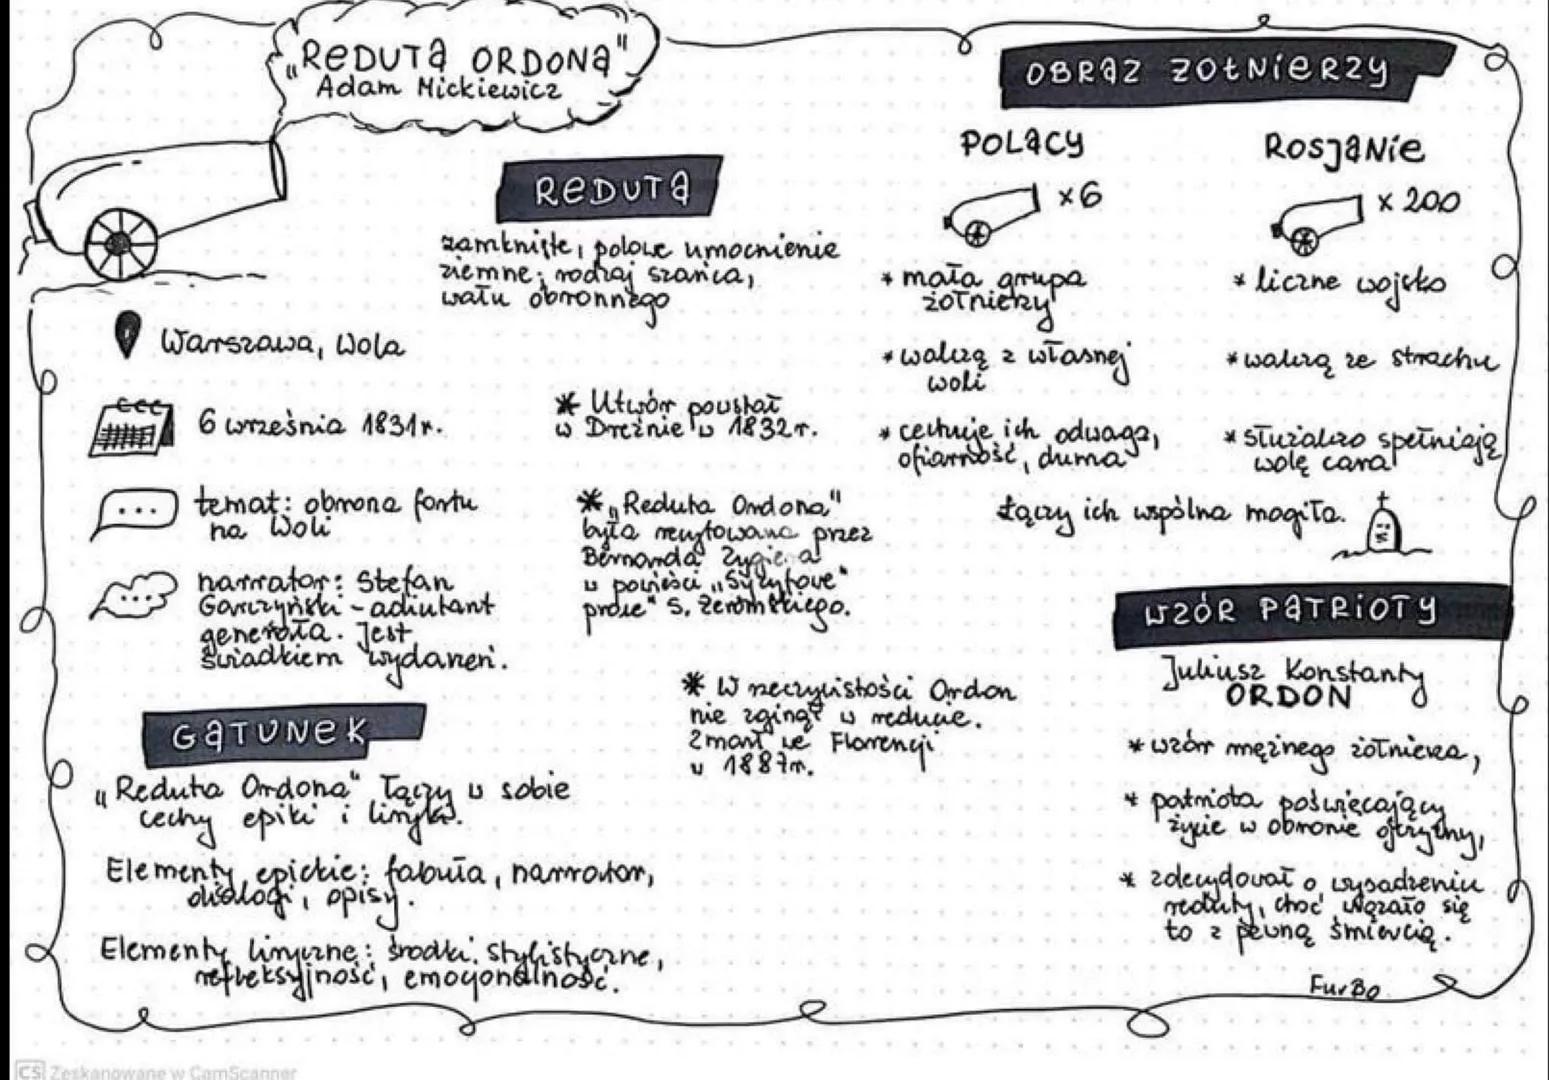 „REDUTA ORDONA"
Adam Mickiewicz
REDUTA
zamknięte, polowe umocnienie
ziemne; rodzaj szańca,
wału obronnego
Warszawa, Wola
6 września 1831r.
temat: obrona fortu
na Woli
narrator: Stefan
Garczyński - adiutant
generała. Jest
świadkiem wydarzeń.
GATUNEK
„Reduta Ordona" łączy w sobie
cechy epiki i liryki.
Elementy epickie: fabuła, narrator,
dialogi, opisy.
Elementy liryczne: środki stylistyczne,
refleksyjność, emocjonalność.
* Utwór powstał
w Dreźnie w 1832r.
* „Reduta Ordona"
była recytowana przez
Bernarda Zygiera
w powieści „Syzyfowe
prace" S. Żeromskiego.
* W rzeczywistości Ordon
nie zginął w reducie.
Zmarł we Florencji
w 1887r.
OBRAZ ŻOŁNIERZY
POLACY
x6
* mała grupa
żołnierzy
* walczą z własnej
woli
* cechuje ich odwaga,
ofiarność, duma
ROSJANIE
x 200
* liczne wojsko
* walczą ze strachu
* służalczo spełniają
wolę cara
Łączy ich wspólna mogiła.
WZÓR PATRIOTY
Juliusz Konstanty
ORDON
* wzór mężnego żołnierza,
* patriota poświęcający
życie w obronie ojczyzny,
* zdecydował o wysadzeniu
reduty, choć wiązało się
to z pewną śmiercią.
FurBo
CS Zeskanowane w CamScanner